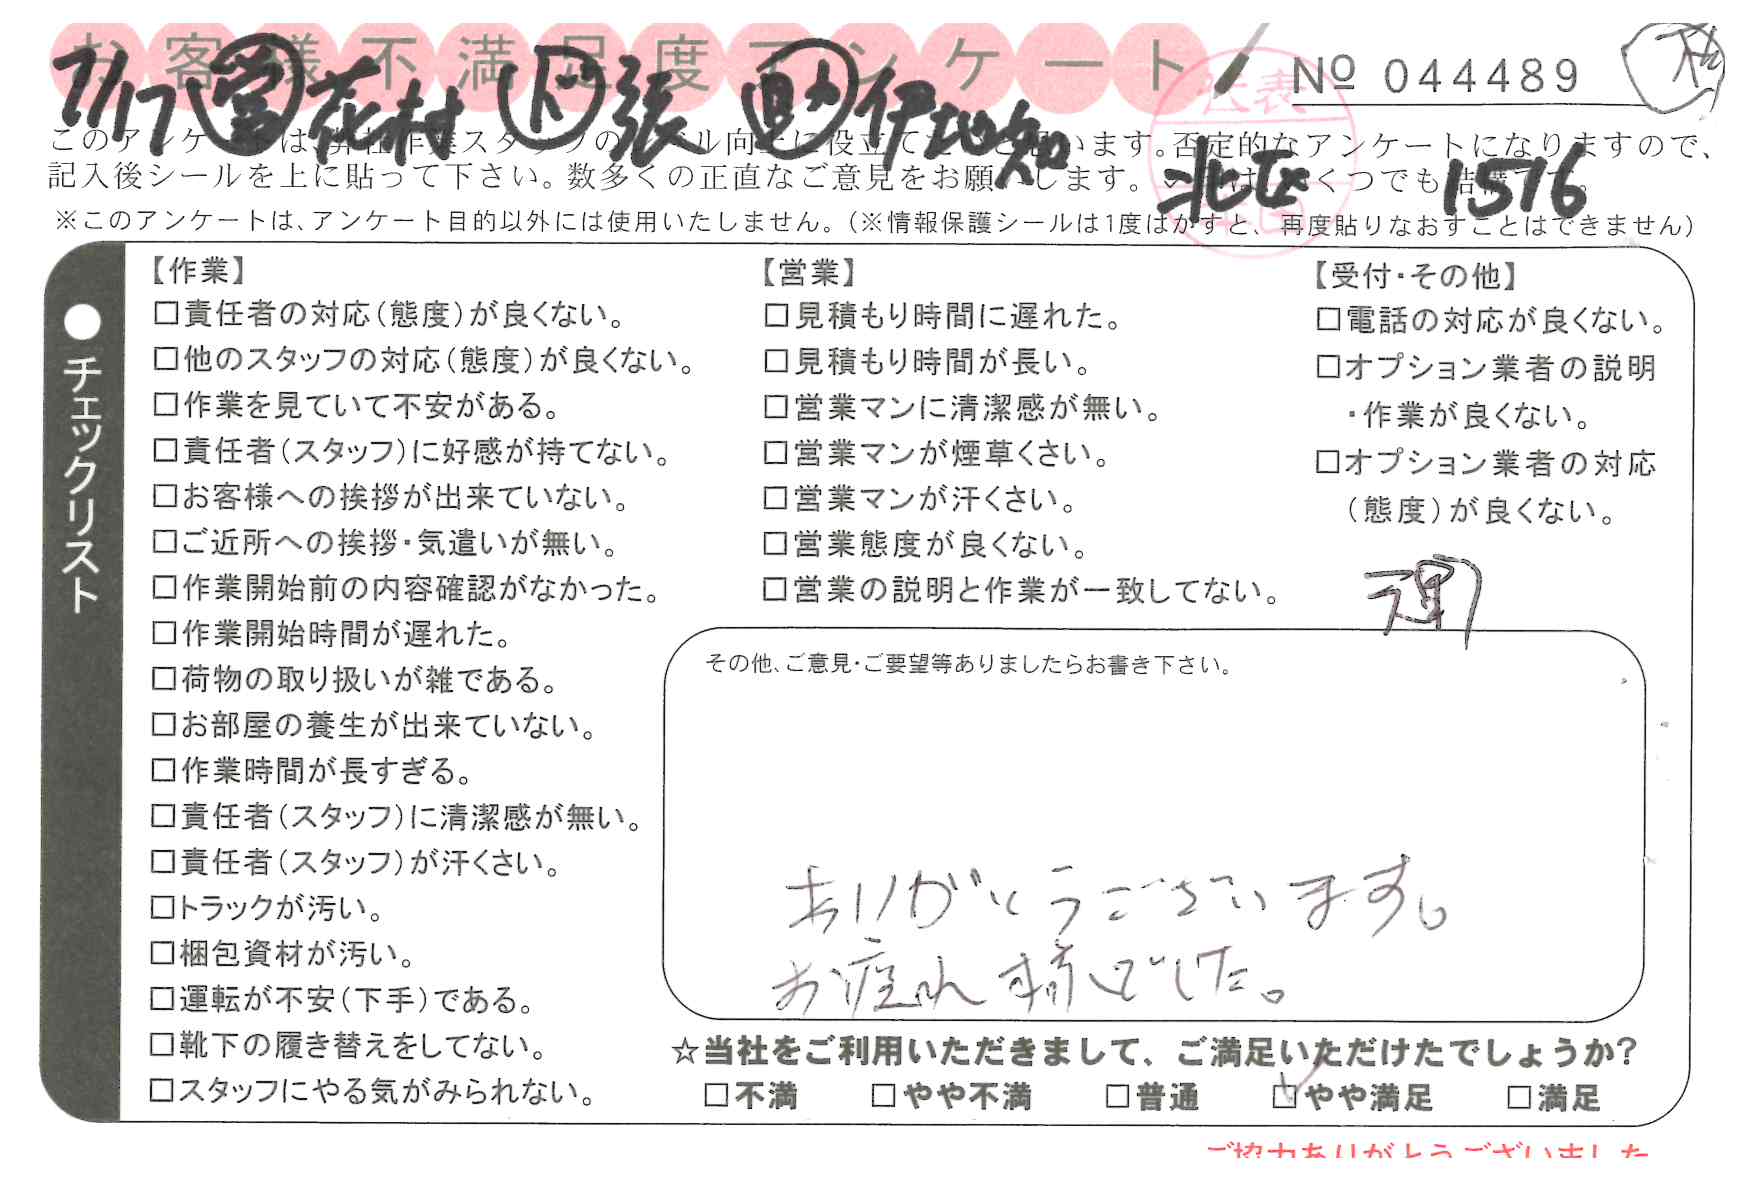 お客様不満足度アンケート
№ 044489
7/17 営 花村 ド 張 助 伊地知
北区 1576
このアンケートは、弊社作業スタッフのレベル向上に役立てたいと思います。否定的なアンケートになりますので、
記入後シールを上に貼って下さい。数多くの正直なご意見をお願いします。いくつでも結構です。
※このアンケートは、アンケート目的以外には使用いたしません。(※情報保護シールは1度はがすと、再度貼りなおすことはできません)
●チェックリスト
【作業】
□責任者の対応(態度)が良くない。
□他のスタッフの対応(態度)が良くない。
□作業を見ていて不安がある。
□責任者(スタッフ)に好感が持てない。
□お客様への挨拶が出来ていない。
□ご近所への挨拶・気遣いが無い。
□作業開始前の内容確認がなかった。
□作業開始時間が遅れた。
□荷物の取り扱いが雑である。
□お部屋の養生が出来ていない。
□作業時間が長すぎる。
□責任者(スタッフ)に清潔感が無い。
□責任者(スタッフ)が汗くさい。
□トラックが汚い。
□梱包資材が汚い。
□運転が不安(下手)である。
□靴下の履き替えをしてない。
□スタッフにやる気がみられない。
【営業】
□見積もり時間に遅れた。
□見積もり時間が長い。
□営業マンに清潔感が無い。
□営業マンが煙草くさい。
□営業マンが汗くさい。
□営業態度が良くない。
□営業の説明と作業が一致してない。
【受付・その他】
□電話の対応が良くない。
□オプション業者の説明
・作業が良くない。
□オプション業者の対応
(態度)が良くない。
その他、ご意見・ご要望等ありましたらお書き下さい。
ありがとうございます。
お疲れ様でした。
☆当社をご利用いただきまして、ご満足いただけたでしょうか?
□不満 □やや不満 □普通 ☑やや満足 □満足
ご協力ありがとうございました